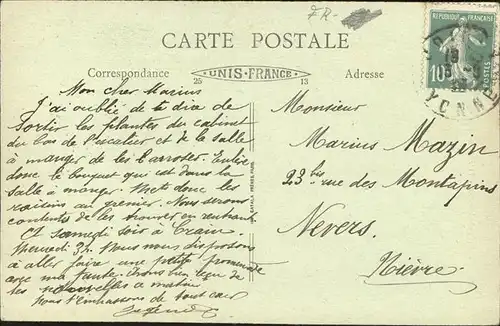 FR-
CARTE POSTALE
RÉPUBLIQUE FRANÇAISE
10c
POSTES
YONNE
Correspondance
UNIS-FRANCE
25 13
Adresse
Mon cher Marius
J'ai oublié de te dire de
sortir les plantes du cabinet
du bas de l'escalier et de la salle
à manger de les arroser. Enlève
donc le bouquet qui est dans la
salle à manger. Mets donc les
raisins au grenier. Nous serons
contents de les trouver en rentrant
samedi soir à train
Mercredi 3h nous nous disposons
à aller faire une petite promenade
avec ma tante. Avons bien reçu de
tes nouvelles ce matin
Nous t'embrassons de tout cœur
Monsieur
Marius Mazin
23 bis rue des Montapins
Nevers.
Nièvre